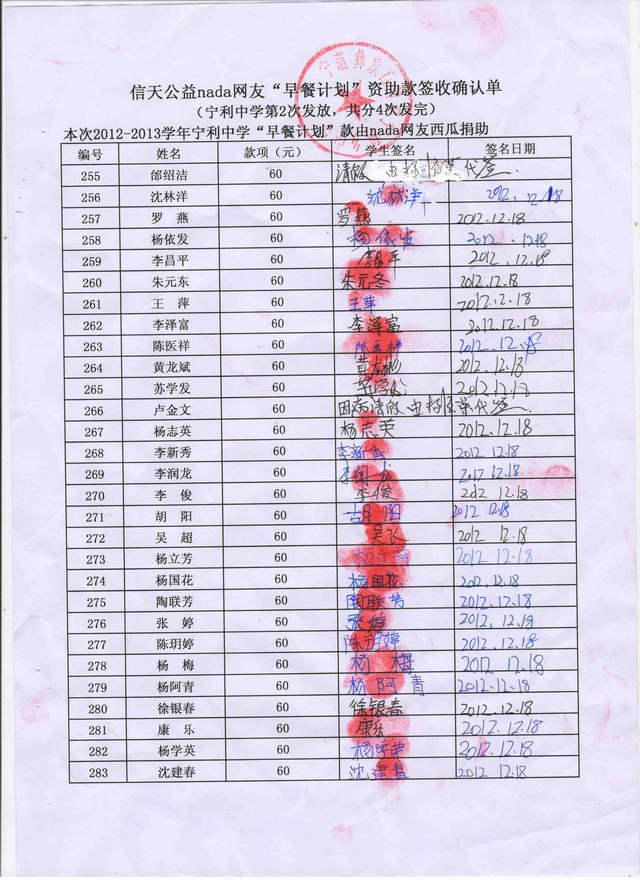 信天公益nada网友“早餐计划”资助款签收确认单
（宁利中学第2次发放，共分4次发完）
本次2012-2013学年宁利中学“早餐计划”款由nada网友西瓜捐助
编号 姓名 款项（元） 学生签名 签名日期
255 邰绍洁 60 请假 由 代签
256 沈林洋 60 沈林洋 2012.12.18
257 罗 燕 60 罗燕 2012.12.18
258 杨依发 60 杨依发 2012.12.18
259 李昌平 60 2012.12.18
260 朱元东 60 朱元冬 2012.12.18
261 王 萍 60 王萍 2012.12.18
262 李泽富 60 李泽富 2012.12.18
263 陈医祥 60 2012.12.18
264 黄龙斌 60 黄龙彬 2012.12.18
265 苏学发 60 2012.12.18
266 卢金文 60 因病请假 由 代签
267 杨志英 60 杨志英 2012.12.18
268 李新秀 60 李新秀 2012 12.18
269 李润龙 60 李润龙 2012 12.18
270 李 俊 60 李俊 2012 12.18
271 胡 阳 60 胡阳 2012 12.18
272 吴 超 60 吴 2012 12.18
273 杨立芳 60 2012.12.18
274 杨国花 60 杨国花 2012.12.18
275 陶联芳 60 陶联芳 2012.12.18
276 张 婷 60 张婷 2012.12.18
277 陈玥婷 60 陈玥婷 2012.12.18
278 杨 梅 60 杨 梅 2012 12.18
279 杨阿青 60 杨阿青 2012.12.18
280 徐银春 60 徐银春 2012.12.18
281 康 乐 60 康乐 2012.12.18
282 杨学英 60 杨学英 2012.12.18
283 沈建春 60 沈建春 2012 12.18